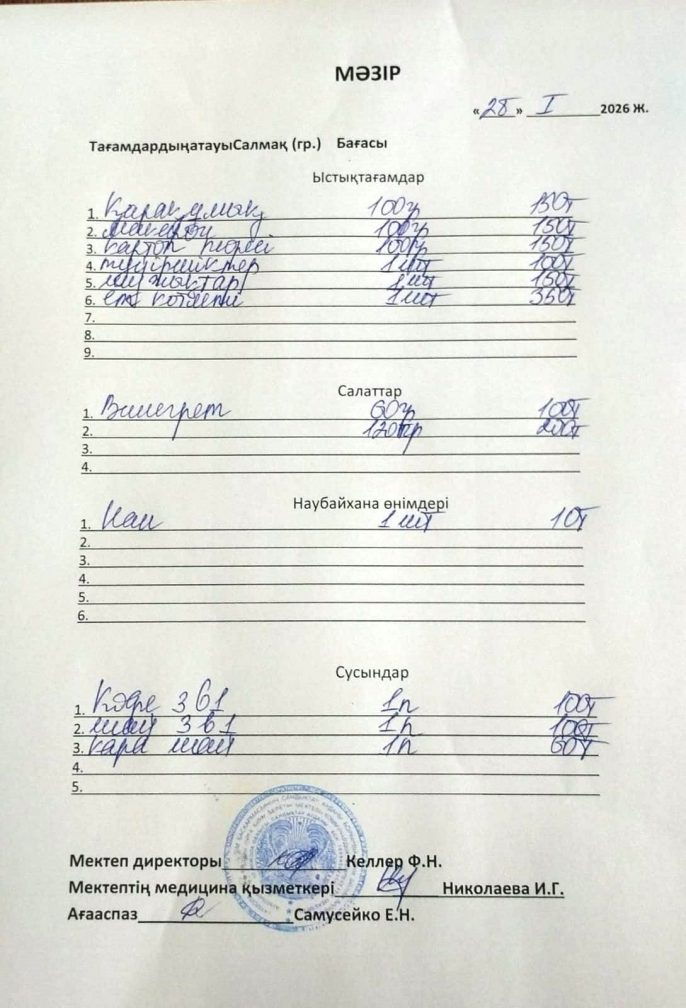 МӘЗІР
«28» I 2026 ж.
ТағамдардыңатауыСалмақ (гр.) Бағасы
Ыстықтағамдар
1. Қарақұмық 100гр 150т
2. макарон 100гр 150т
3. картоп пюреси 100гр 150т
4. 1шт 100т
5. 1шт 150т
6. ет котлети 1шт 350т
7.
8.
9.
Салаттар
1. Винегрет 60гр 100т
2. 120гр 200т
3.
4.
Наубайхана өнімдері
1. Нан 1шт 10т
2.
3.
4.
5.
6.
Сусындар
1. Кофе 3в1 1п 100т
2. шай 3в1 1п 100т
3. кара шай 1п 60т
4.
5.
Мектеп директоры Келлер Ф.Н.
Мектептің медицина қызметкері Николаева И.Г.
Ағааспаз Самусейко Е.Н.